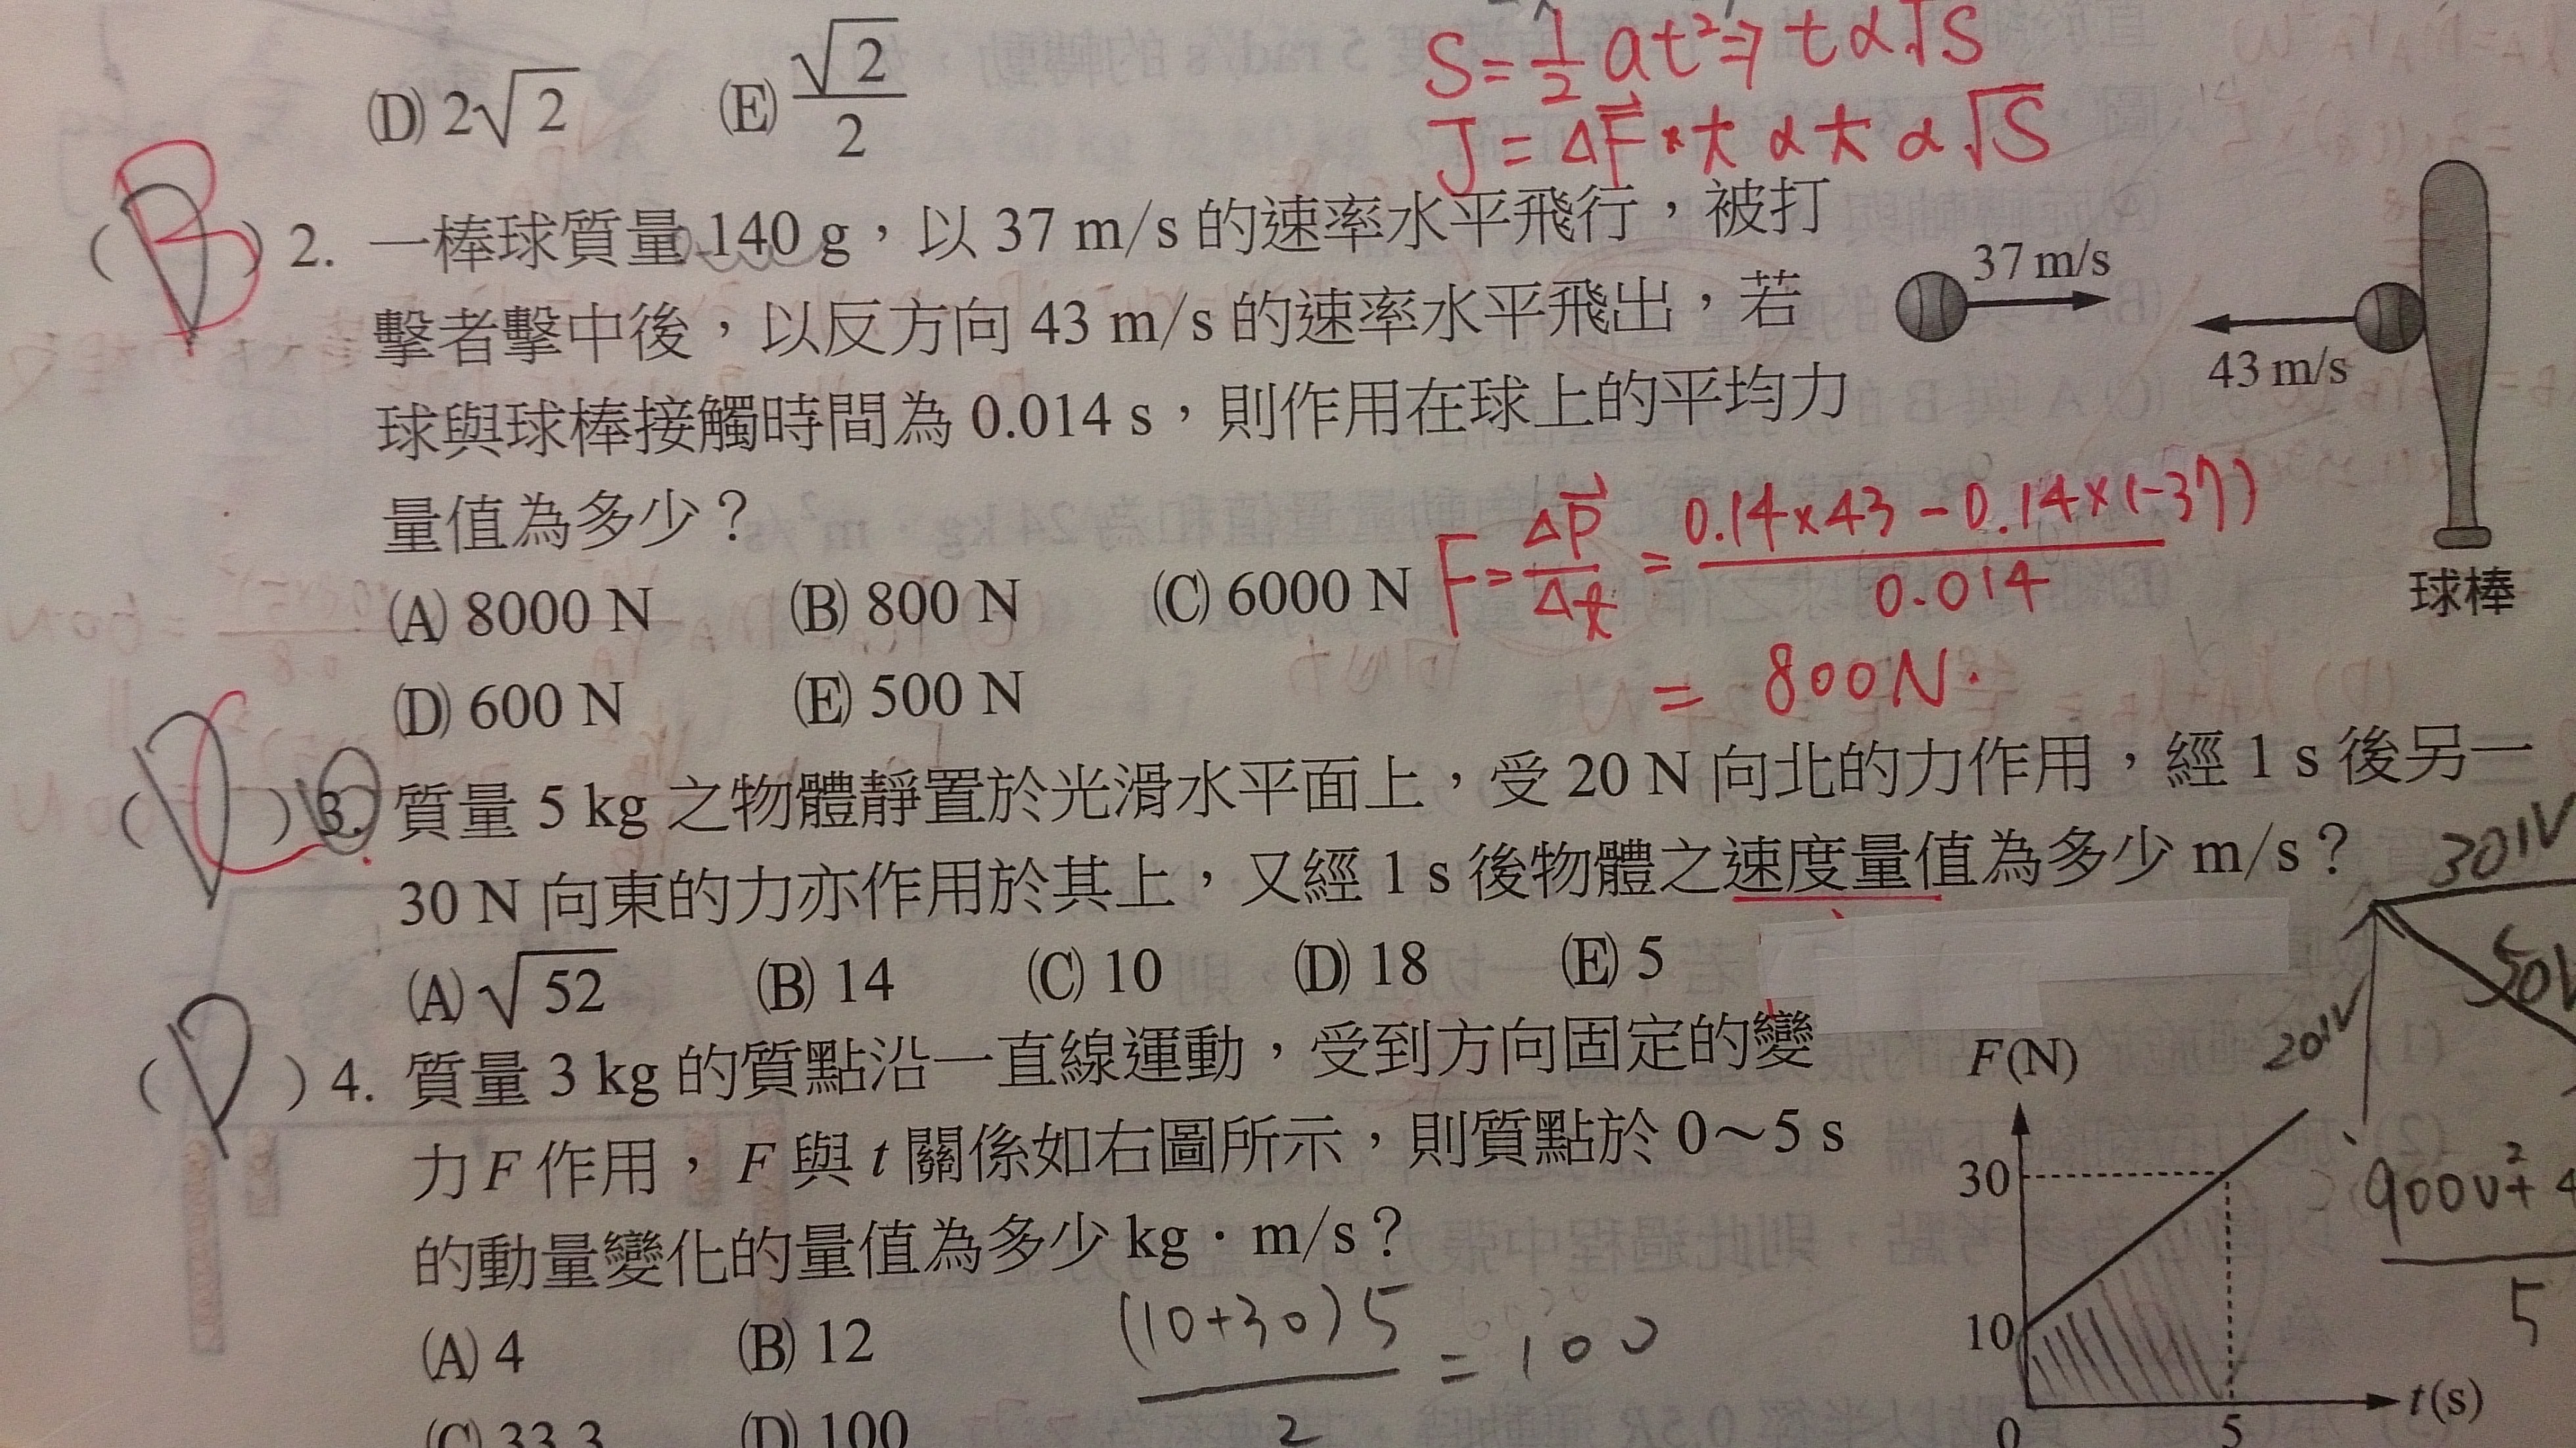 S=½at²⇒t∝√S
(D) 2√2 (E) √2/2
J=ΔF×t∝t∝√S
(B) 2. 一棒球質量 140 g，以 37 m/s 的速率水平飛行，被打
擊者擊中後，以反方向 43 m/s 的速率水平飛出，若
球與球棒接觸時間為 0.014 s，則作用在球上的平均力
量值為多少？
37 m/s
43 m/s
球棒
F=ΔP/Δt=(0.14×43-0.14×(-37))/0.014
(A) 8000 N (B) 800 N (C) 6000 N
= 800N.
(D) 600 N (E) 500 N
(C) 3. 質量 5 kg 之物體靜置於光滑水平面上，受 20 N 向北的力作用，經 1 s 後另一
30 N 向東的力亦作用於其上，又經 1 s 後物體之速度量值為多少 m/s？
(A) √52 (B) 14 (C) 10 (D) 18 (E) 5
(D) 4. 質量 3 kg 的質點沿一直線運動，受到方向固定的變
力 F 作用， F 與 t 關係如右圖所示，則質點於 0～5 s
的動量變化的量值為多少 kg · m/s？
(A) 4 (B) 12
(C) 33.3 (D) 100
(10+30)5/2 = 100
F(N)
30
10
0
5
t(s)